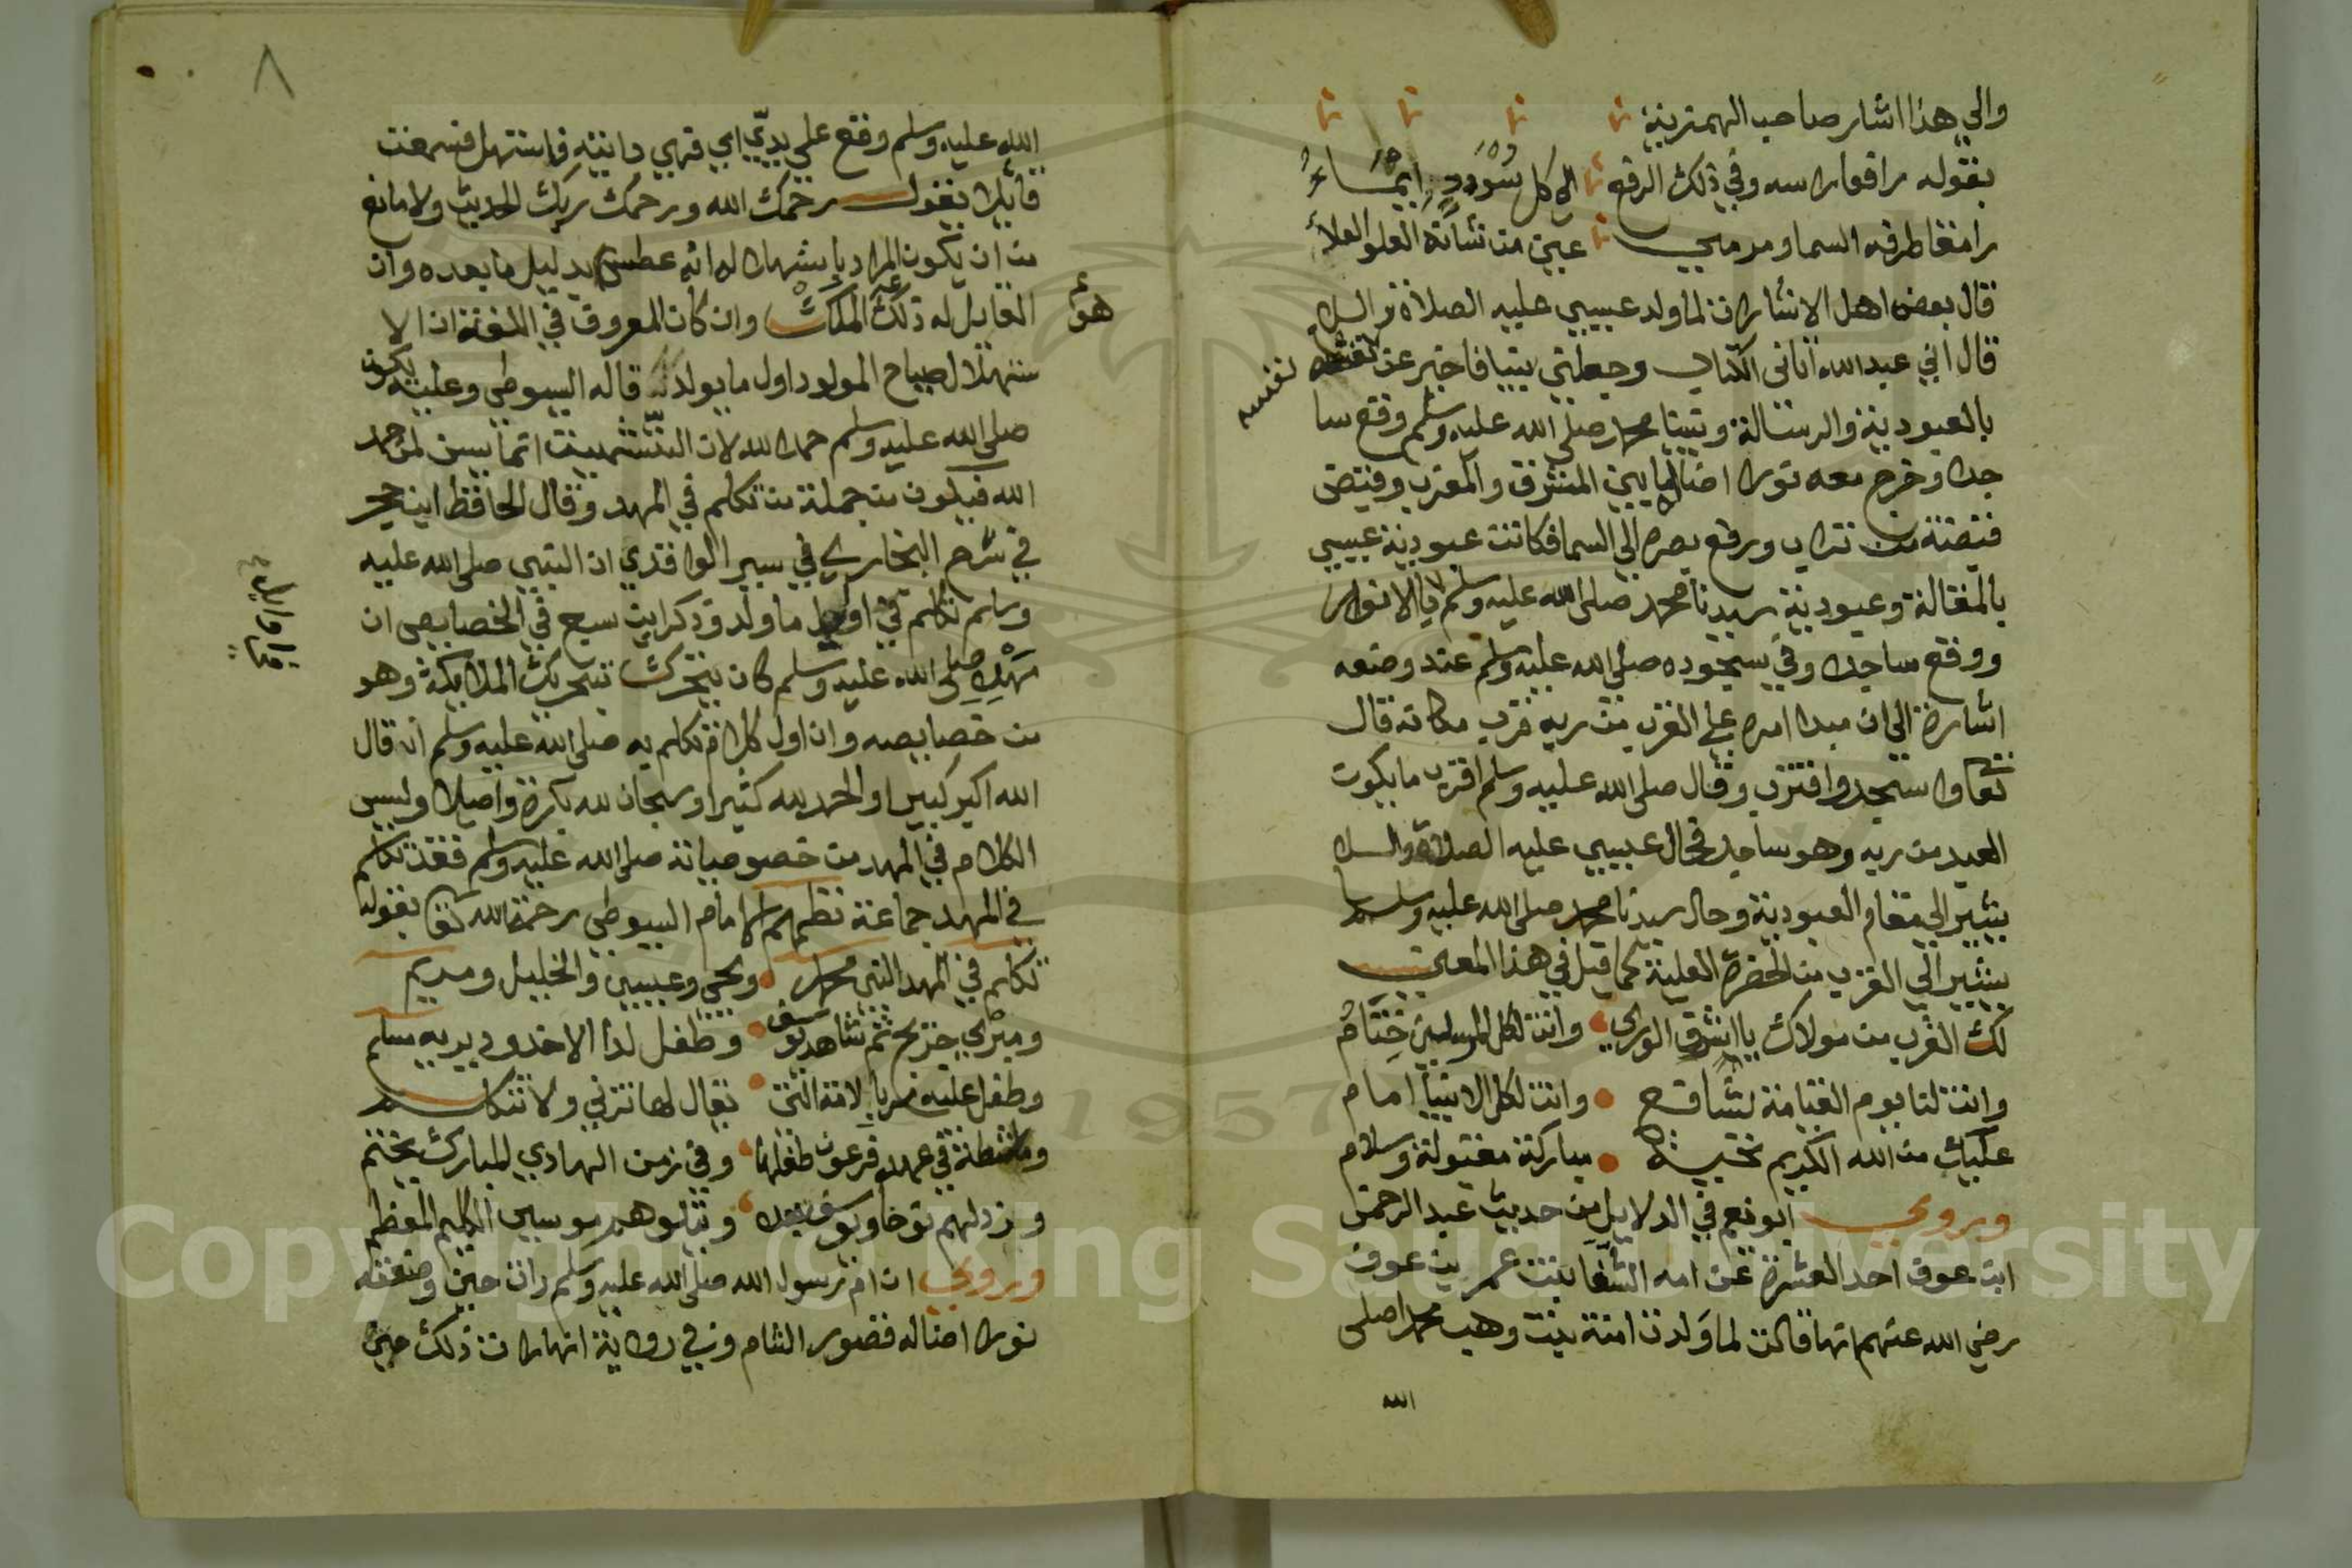 والي هذا اشار صاحب الهمزية
بقوله رافعا راسه وفي ذلك الرفع الي كل سُؤْدَدٍ اِيمَاءُ
رامقا طرفه السما ومرمي عين من شانه العلو العلاء
قال بعض اهل الاشارات لما ولد عيسي عليه الصلاة والسلا
قال اني عبد الله اتاني الكتاب وجعلني نبيا فاخبر عن نفسه
نفسه
بالعبودية والرسالة ونبينا محمد صلى الله عليه وسلم وقع سا
جدا وخرج معه نورا اضا له ما بين المشرق والمغرب وقبض
قبضة من تراب ورفع بصره الي السما فكانت عبودية عيسي
بالمقالة وعبودية سيدنا محمد صلى الله عليه وسلم بالانوار
ووقع ساجدا وفي سجوده صلى الله عليه وسلم عند وضعه
اشارة الي ان مبدا امره علي القرب من ربه قرب مكانه قال
تعا واسجد واقترب وقال صلى الله عليه وسلم اقرب ما يكون
العبد من ربه وهو ساجد فحال عيسي عليه الصلاة والسلا
يشير الي مقام العبودية وحال سيدنا محمد صلى الله عليه وسلم
يشير الي القرب من الحضرة العلية كما قيل في هذا المعني
لك القرب من مولاك يا اشرف الوري وانت لكل المرسلين خِتَامُ
وانت لنا يوم القيامة شافع وانت لكل الانبيا امام
عليك من الله الكريم تحية مباركة مقبولة وسلام
وروي ابو نعيم في الدلايل من حديث عبد الرحمن
ابن عوف احد العشرة عن امه الشفا بنت عمر بن عوف
رضي الله عنهم انها قالت لما ولدت امنة بنت وهب محمدا صلى
الله
٨
الله عليه وسلم وقع علي يديّ اي فهي دايته فاستهل فسمعت
قايلا يقول رحمك الله ورحمك ربك الحديث ولا مانع
من ان يكون المراد باستهلاله انه عطس بدليل ما بعده وان
القايل له ذلك الملك وان كان المعروف في اللغة ان الا
هو
ستهلال صياح المولود اول ما يولد قاله السيوطي وعليه يكون
صلى الله عليه وسلم حمد الله لان التشميت انما يسن لمن حمد
الله فيكون من جملة من تكلم في المهد وقال الحافظ ابن حجر
في شرح البخاري في سير الواقدي ان النبي صلى الله عليه
وسلم تكلم في اوايل ما ولد وذكر ابن سبع في الخصايص ان
في اوايل
مهده صلى الله عليه وسلم كان يتحرك بتحريك الملايكة وهو
من خصايصه وان اول كلام تكلم به صلى الله عليه وسلم ان قال
الله اكبر كبيرا والحمد لله كثيرا وسبحان الله بكرة واصيلا وليس
الكلام في المهد من خصوصياته صلى الله عليه وسلم فقد تكلم
في المهد جماعة نظمهم الامام السيوطي رحمة الله تعا بقوله
تكلم في المهد النبي محمد ويحيي وعيسي والخليل ومريم
ومبري جريج ثم شاهد يوسف وطفل لذا الاخدود يرويه مسلم
وطفل عليه مر بالامة التي يقال لها تزني ولا تتكلم
وماشطة في عهد فرعون طفلها وفي زمن الهادي المبارك يختم
وزد لهم نوحا ويوسف بعده ويتلوهم موسي الكليم المعظم
وروي ان ام رسول الله صلى الله عليه وسلم رات حين وضعته
نورا اضا له قصور الشام وفي رواية انها رات ذلك حين